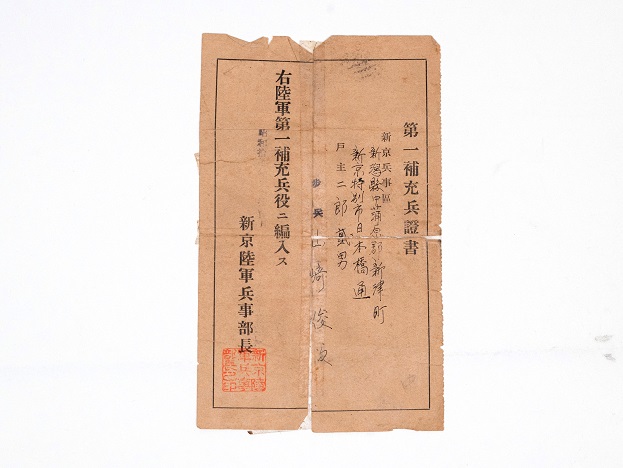 第一補充兵證書
新京兵事區
新潟縣中蒲原郡新津町
新京特別市日本橋通
戸主二郎貳男
歩兵 山崎俊
右陸軍第一補充兵役ニ編入ス
昭和
新京陸軍兵事部長
新京陸軍兵事部長之印